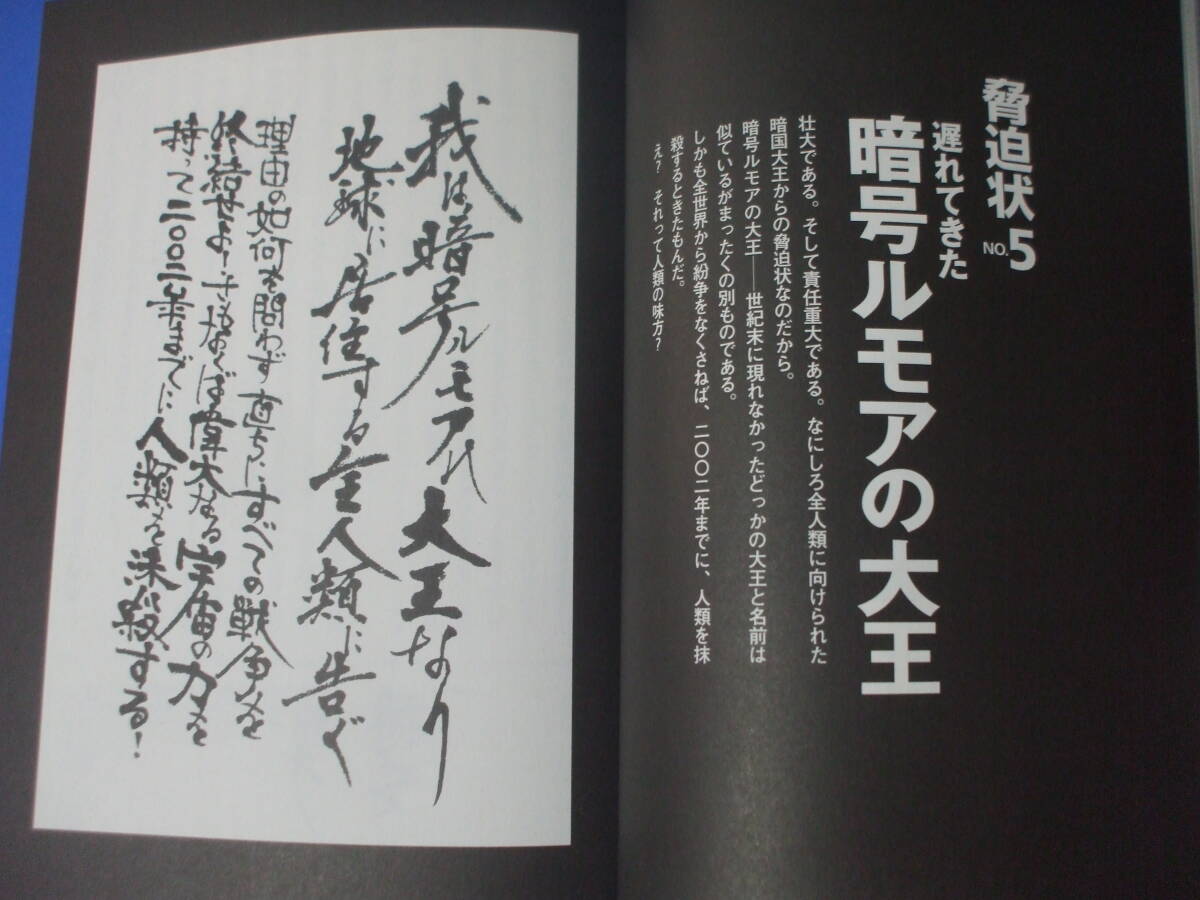 脅迫状 NO.5
遅れてきた
暗号ルモアの大王
壮大である。そして責任重大である。なにしろ全人類に向けられた
暗国大王からの脅迫状なのだから。
暗号ルモアの大王――世紀末に現れなかったどっかの大王と名前は
似ているがまったくの別ものである。
しかも全世界から紛争をなくさねば、二〇〇二年までに、人類を抹
殺するときたもんだ。
え？　それって人類の味方？
我は暗号ルモアの大王なり
地球に居住する全人類に告ぐ
理由の如何を問わず直ちにすべての戦争を
終結せよ！さもなくば偉大なる宇宙の力を
持って二〇〇二年までに人類を抹殺する！